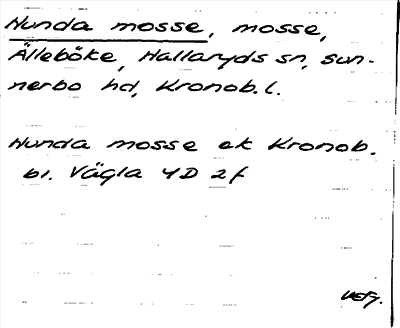 Hunda mosse, mosse,
Älleböke, Hallaryds sn, sun-
nerbo hd, Kronob. l.
Hunda mosse ek Kronob.
bl. Vägla 4D 2f